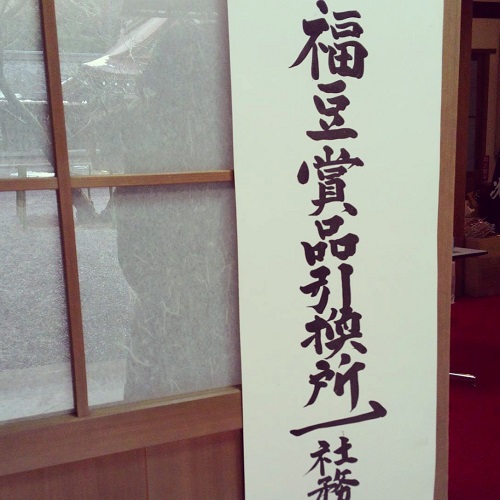 福豆賞品引換所
社務